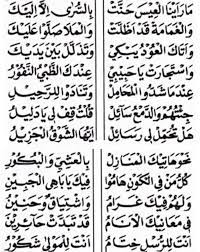 مَا رَأَيْنَا الْعِيسَ حَنَّتْ بِالسُّرَى إِلَّا إِلَيْكَ
وَالْغَمَامَة قَدْ أَظَلَّتْ وَالْمَلَا صَلُّوا عَلَيْكَ
وَأَتَاكَ الْعُودُ يَبْكِي وَتَذَلَّلْ بَيْنَ يَدَيْكَ
وَاسْتَجَارَتْ يَا حَبِيبِي عِنْدَكَ الظَّبْيُ النَّفُورُ
عِنْدَمَا شَدُّوا الْمَحَامِلْ وَتَنَادَوْا لِلرَّحِيلِ
جِئْتُهُمْ وَالدَّمْعُ سَائِلْ قُلْتُ قِفْ لِي يَا دَلِيلُ
هَلْ تُحَمِّلْ لِي رَسَائِلْ أَيُّهَا الشَّوْقُ الْجَزِيلُ
نَحْوَ هَاتِيكَ الْمَنَازِلْ بِالْعَشِيِّ وَالْبُكُورِ
كُلُّ مَنْ فِي الْكَوْنِ هَامُوا فِيكَ يَا بَاهِي الْجَبِينِ
وَلَهُمْ فِيكَ غَرَامُ وَاشْتِيَاقٌ وَحَنِينُ
فِي مَعَانِيكَ الْأَنَامُ قَدْ تَبَدَّتْ حَائِرِينَ
أَنْتَ لِلرُّسْلِ خِتَامُ أَنْتَ لِلْمَوْلَى شَكُورُ